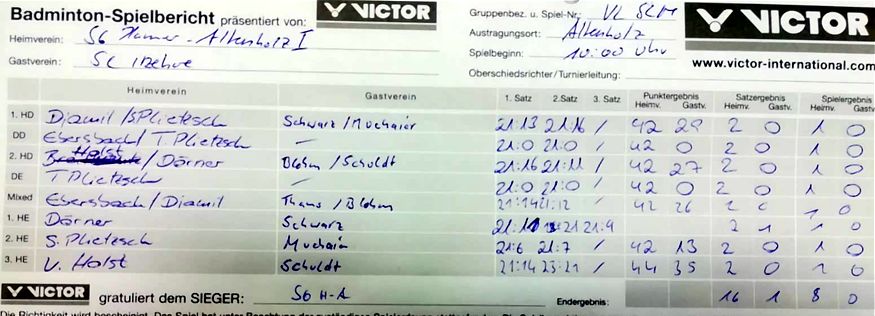 Badminton-Spielbericht präsentiert von: VICTOR
Gruppenbez. u. Spiel-Nr. VL SLH
VICTOR
Heimverein: SG Hamer - Altenholz I
Austragungsort: Altenholz
Gastverein: SC Itzehoe
Spielbeginn: 10:00 Uhr
www.victor-international.com
Oberschiedsrichter/Turnierleitung:
Heimverein Gastverein 1. Satz 2. Satz 3. Satz Punktergebnis Heimv. Gastv. Satzergebnis Heimv. Gastv. Spielergebnis Heimv. Gastv.
1. HD Djamil / S Plietzsch Schwarz / Muchaier 21:13 21:16 / 42 29 2 0 1 0
DD Ebersbach / T. Plietzsch — 21:0 21:0 / 42 0 2 0 1 0
2. HD Holst / Dörner Blohm / Schuldt 21:16 21:11 / 42 27 2 0 1 0
DE T Plietzsch — 21:0 21:0 / 42 0 2 0 1 0
Mixed Ebersbach / Djamil Thams / Blohm 21:14 21:12 / 42 26 2 0 1 0
1. HE Dörner Schwarz 21:9 2 1 1 0
2. HE S. Plietzsch Muchaier 21:6 21:7 / 42 13 2 0 1 0
3. HE V. Holst Schuldt 21:14 23:21 / 44 35 2 0 1 0
VICTOR gratuliert dem SIEGER: SG H-A Endergebnis: 16 1 8 0